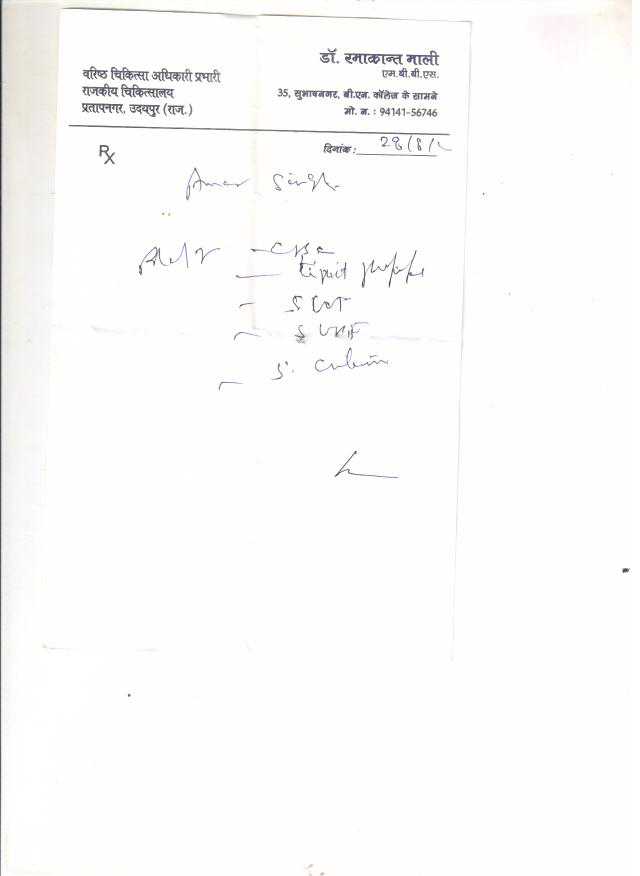 डॉ. रमाकान्त माली
एम.बी.बी.एस.
35, सुभाषनगर, बी.एन. कॉलेज के सामने
मो. न. : 94141-56746
वरिष्ठ चिकित्सा अधिकारी प्रभारी
राजकीय चिकित्सालय
प्रतापनगर, उदयपुर (राज.)
दिनांक: 28/8/
Rx
Amar Singh
- CBC
- Lipid profile